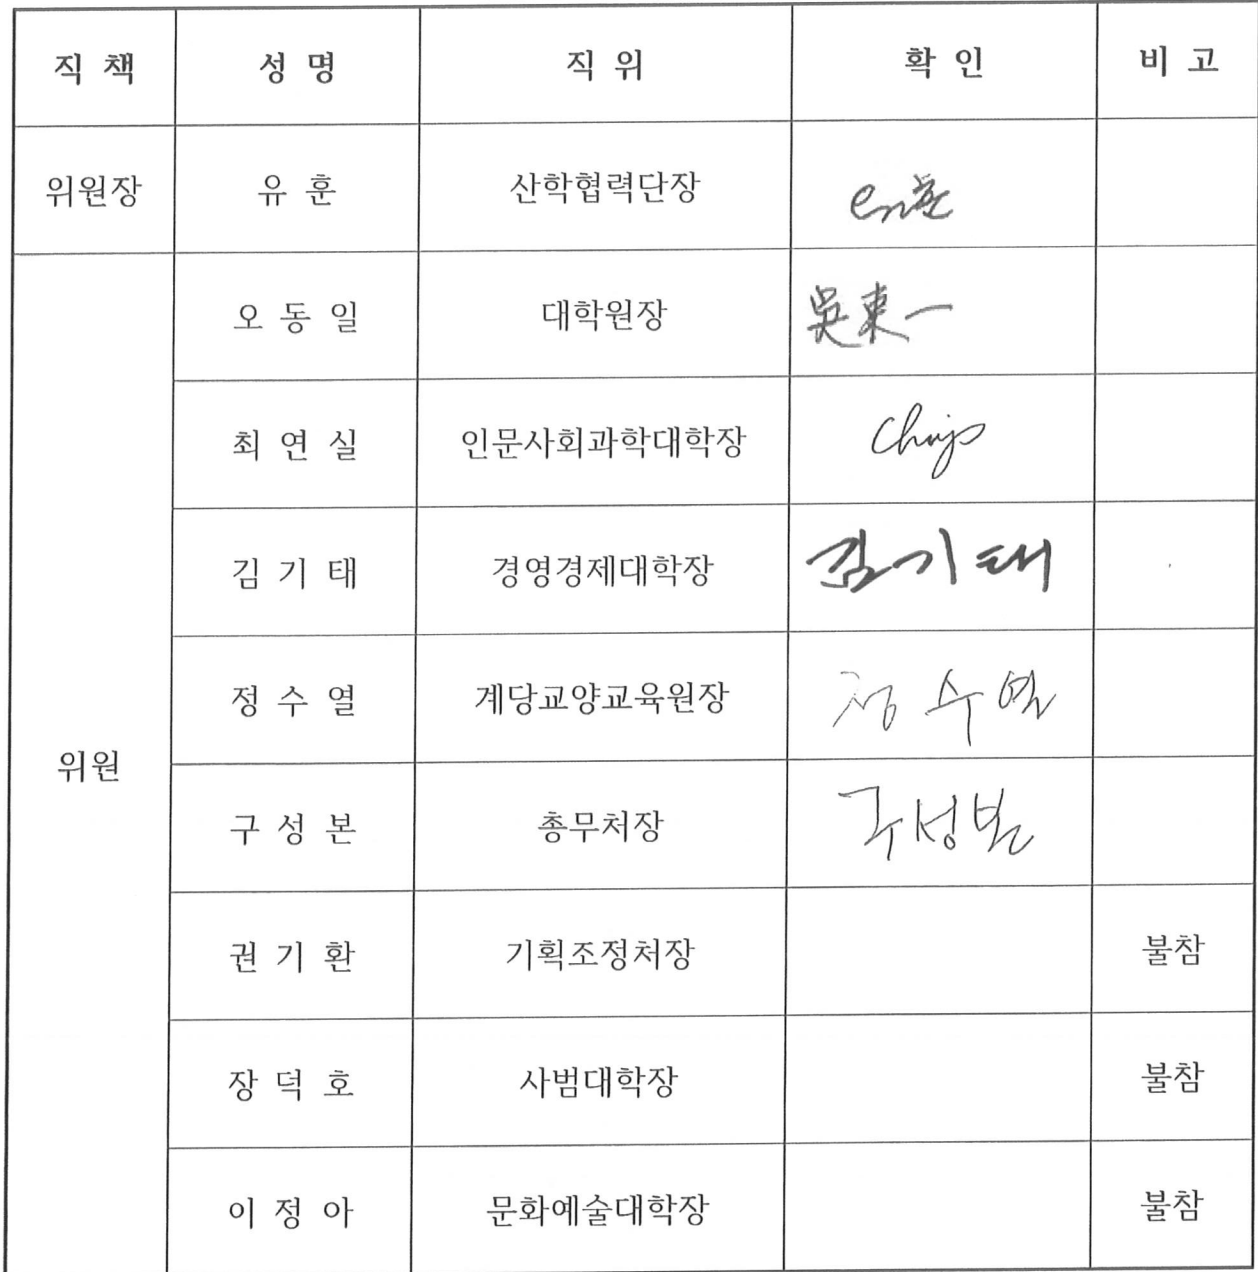 직 책 성 명 직 위 확 인 비 고
위원장 유 훈 산학협력단장
오 동 일 대학원장 吳東一
최 연 실 인문사회과학대학장
김 기 태 경영경제대학장 김기태
정 수 열 계당교양교육원장 정수열
위원
구 성 본 총무처장 구성본
권 기 환 기획조정처장 불참
장 덕 호 사범대학장 불참
이 정 아 문화예술대학장 불참